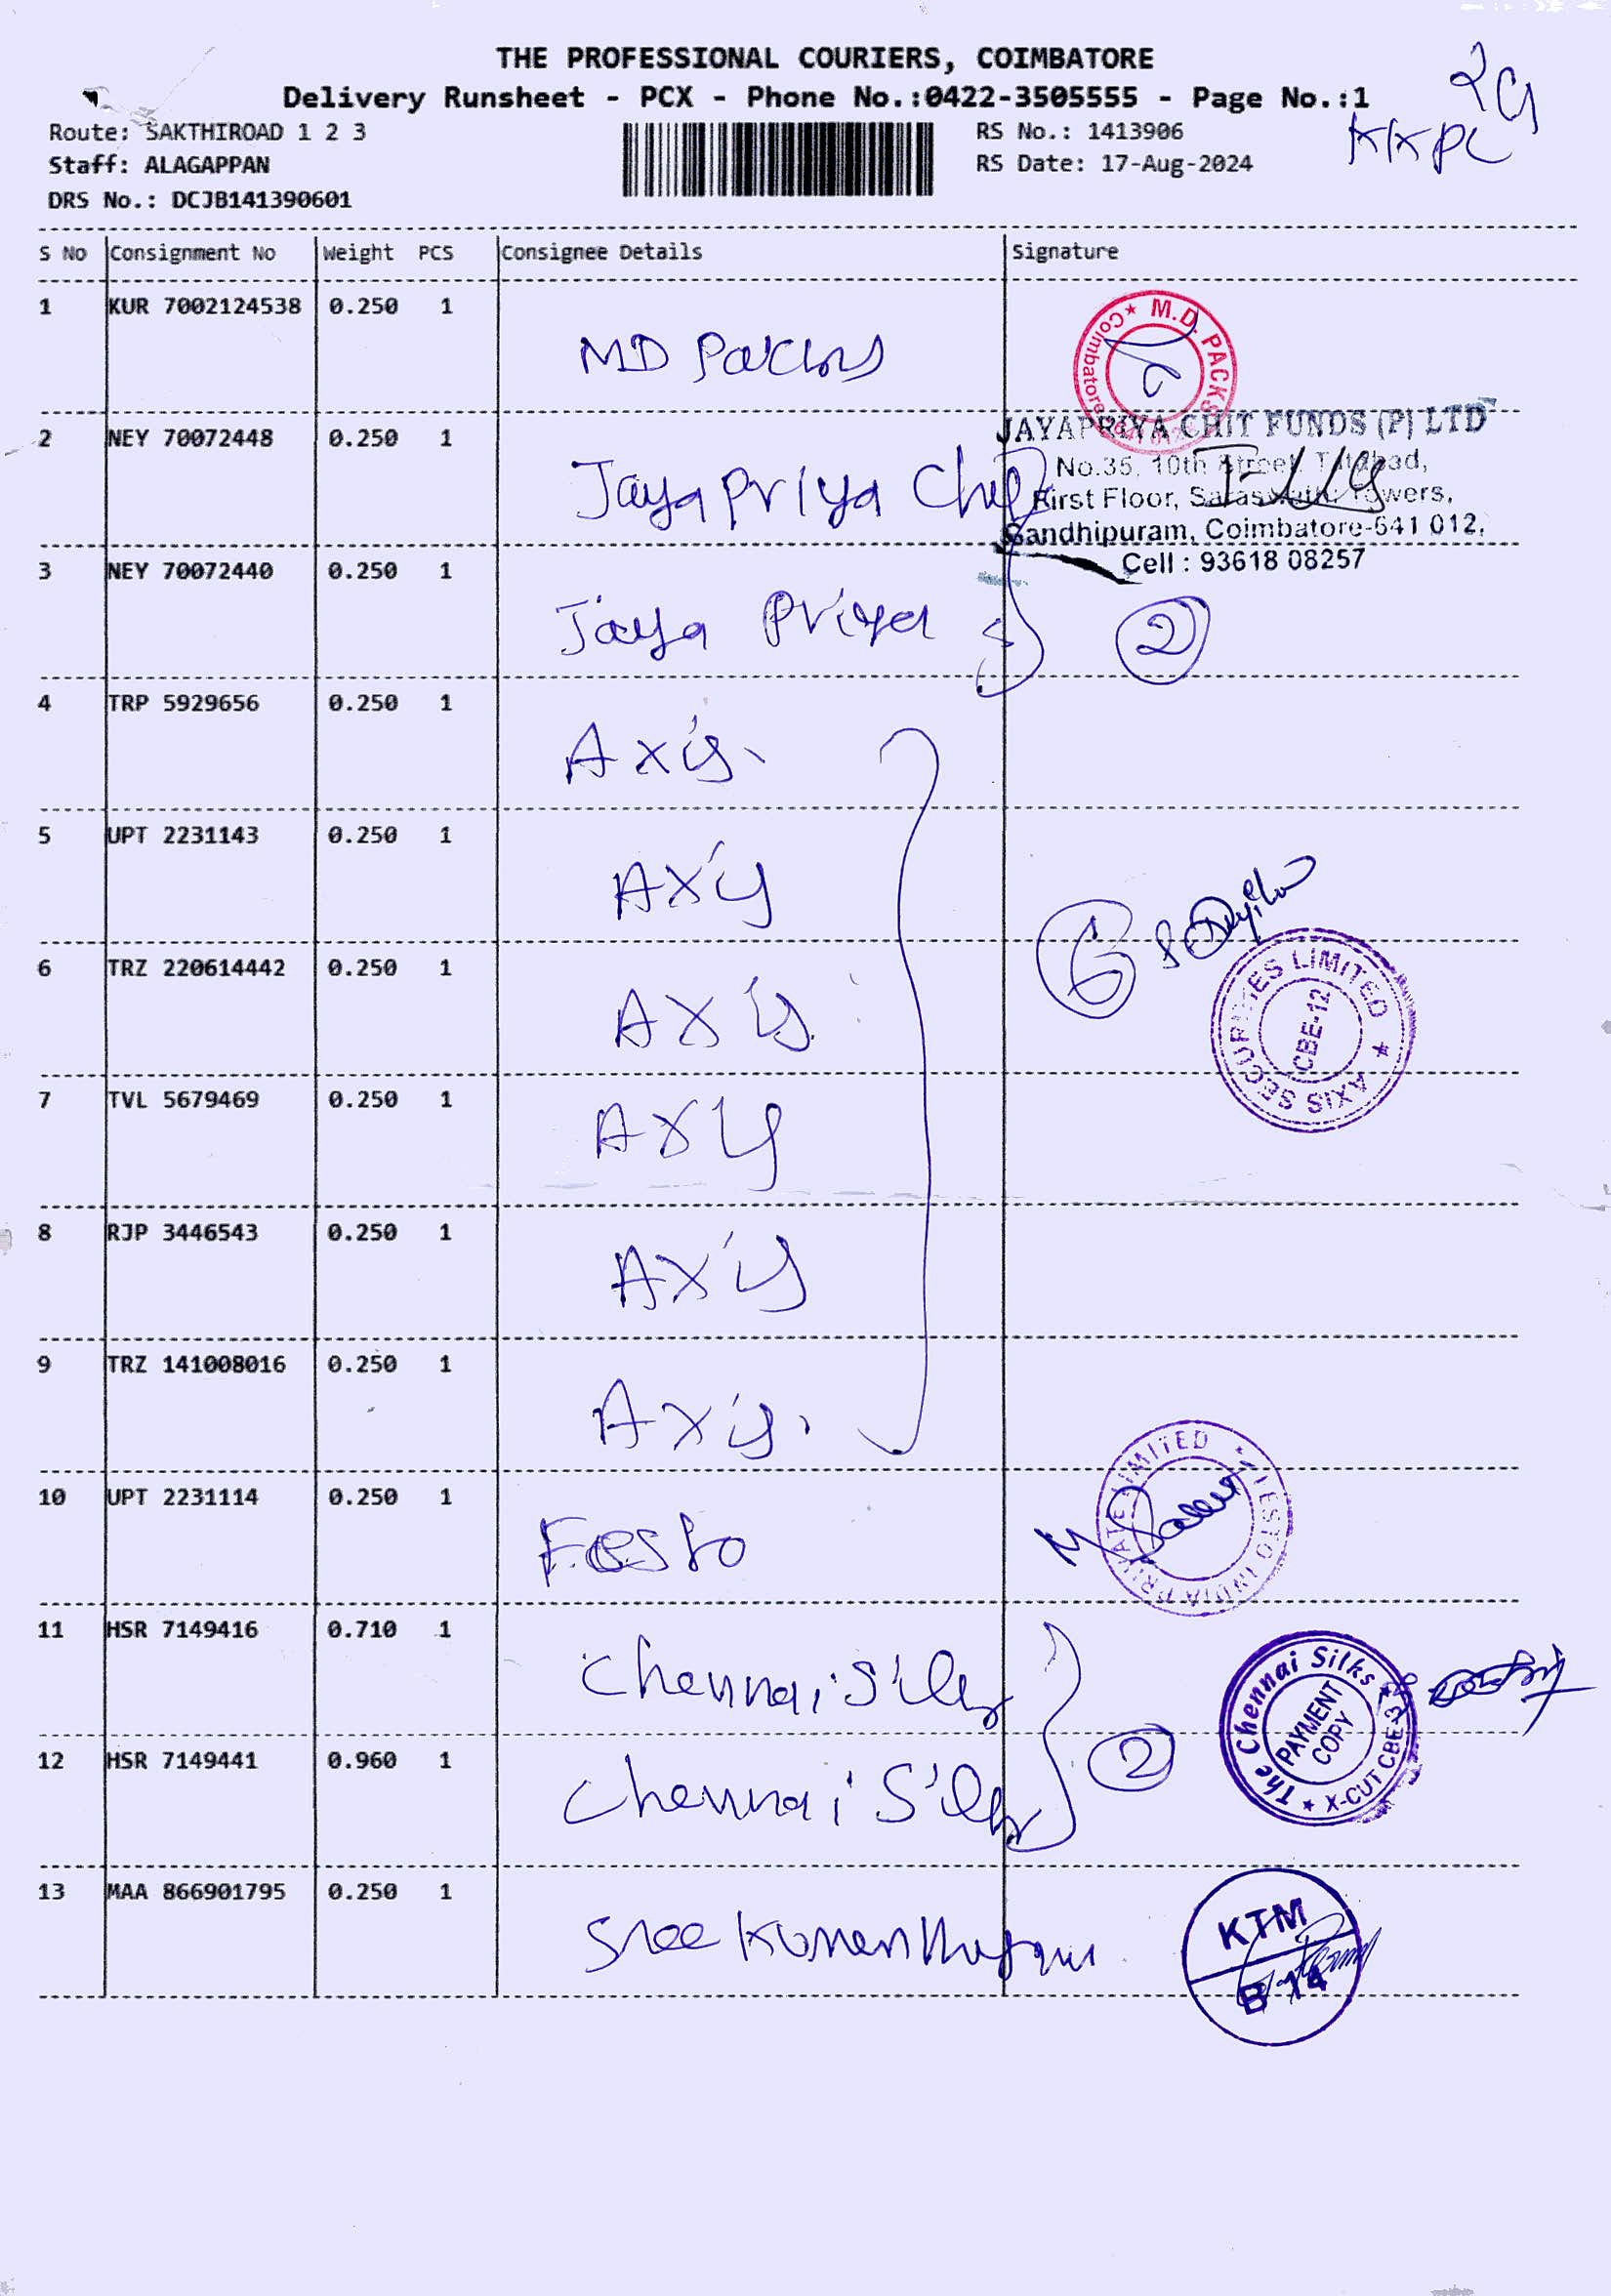 THE PROFESSIONAL COURIERS, COIMBATORE
Delivery Runsheet - PCX - Phone No.:0422-3505555 - Page No.:1
KKPL
Route: SAKTHIROAD 1 2 3
RS No.: 1413906
Staff: ALAGAPPAN
RS Date: 17-Aug-2024
DRS No.: DCJB141390601
S No Consignment No Weight PCS Consignee Details Signature
1 KUR 7002124538 0.250 1
MD Packs
M.D. PACKS ★ Coimbatore
2 NEY 70072448 0.250 1
Jaya Priya Chit
JAYAPRIYA CHIT FUNDS (P) LTD
No.35, 10th Street, Tatabad,
First Floor, Saraswathi Towers,
Gandhipuram, Coimbatore-641 012.
Cell : 93618 08257
3 NEY 70072440 0.250 1
Jaya Priya
2
4 TRP 5929656 0.250 1
Axis
5 UPT 2231143 0.250 1
Axis
6
6 TRZ 220614442 0.250 1
Axis
AXIS SECURITIES LIMITED ★
CBE-12
7 TVL 5679469 0.250 1
Axis
8 RJP 3446543 0.250 1
Axis
9 TRZ 141008016 0.250 1
Axis
10 UPT 2231114 0.250 1
Festo
INDIA PRIVATE LIMITED ★
11 HSR 7149416 0.710 1
Chennai Silks
The Chennai Silks ★ X-CUT CBE-2
PAYMENT
COPY
12 HSR 7149441 0.960 1
Chennai Silks
2
13 MAA 866901795 0.250 1
Sree Kumaran
KTM
B 14